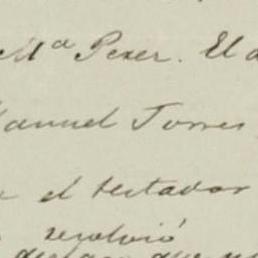 Mª Perer. El a
Manuel Torres
el testador
resolvió
que